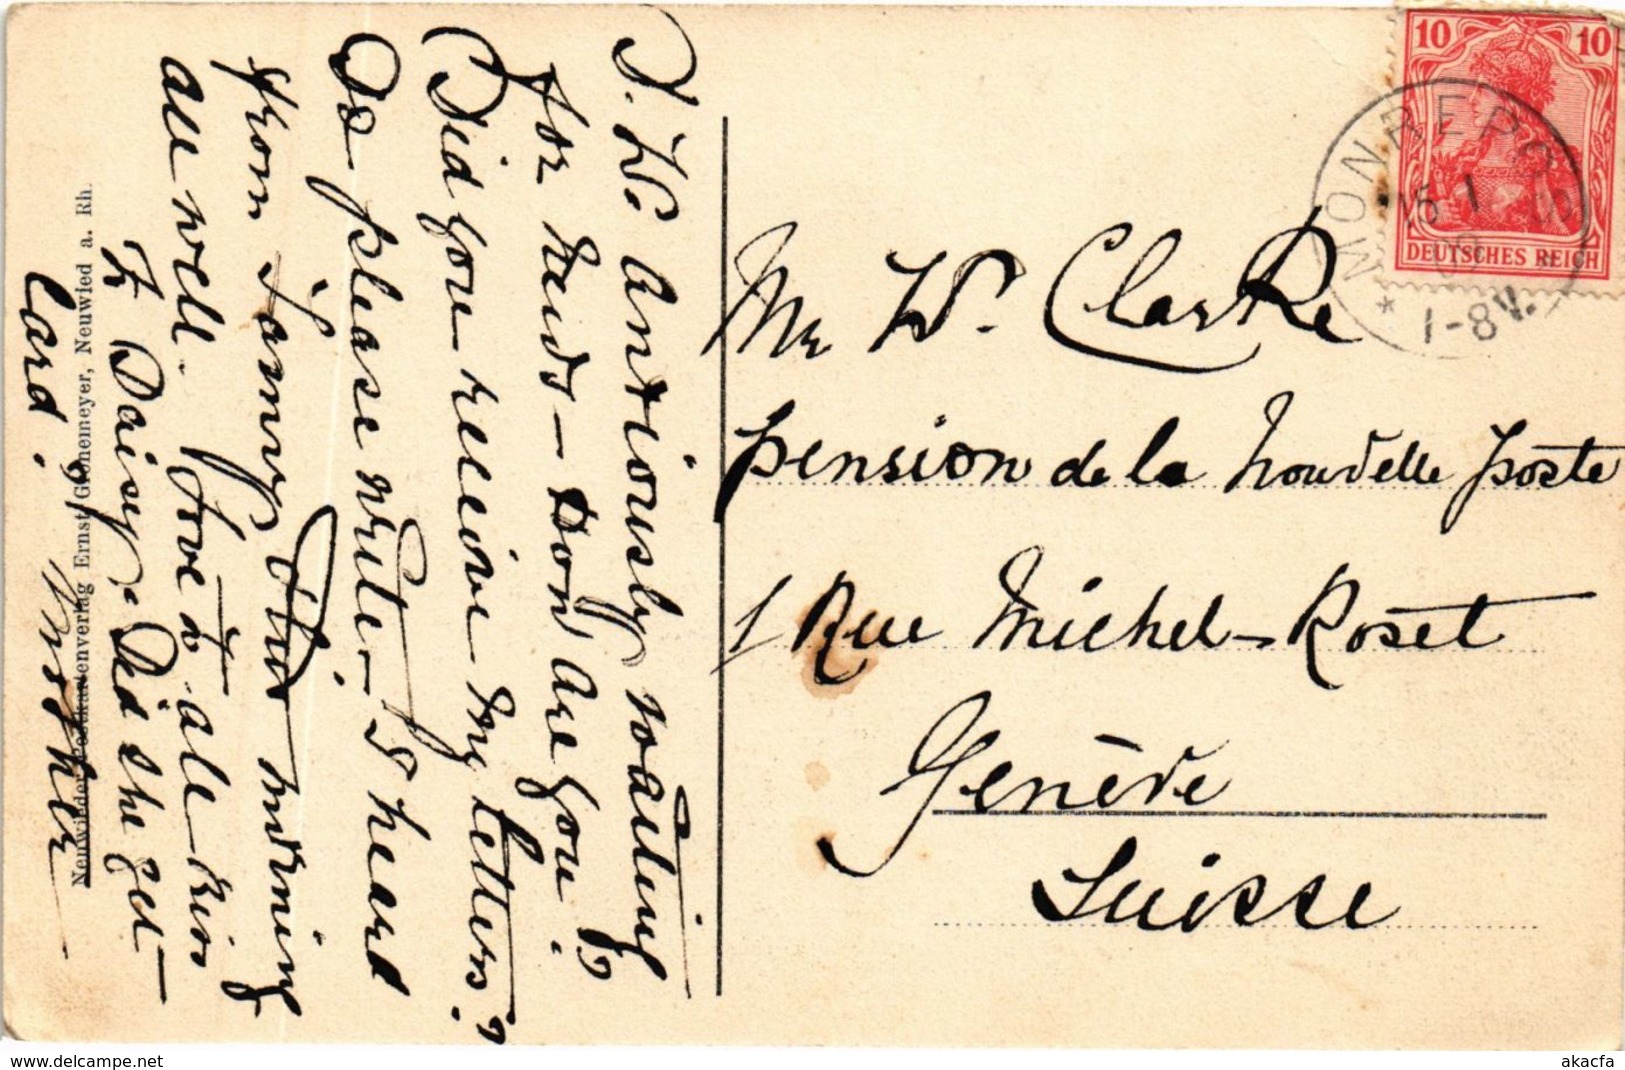 I. W. Anxiously waiting
for news — How are you?
Did you receive my letters?
Do please write. I heard
from Tommy this morning
all well. Love to all kiss
to Daisy. Did she get
Card.
Mother
Neuwieder Postkartenverlag Ernst Gronemeyer, Neuwied a. Rh.
10 10
DEUTSCHES REICH
MONREPOS
15 1
* 1-8V.
Mr W. Clarke
Pension de la Nouvelle Poste
1 Rue Michel-Roset
Genève
Suisse
akacfa
www.delcampe.net